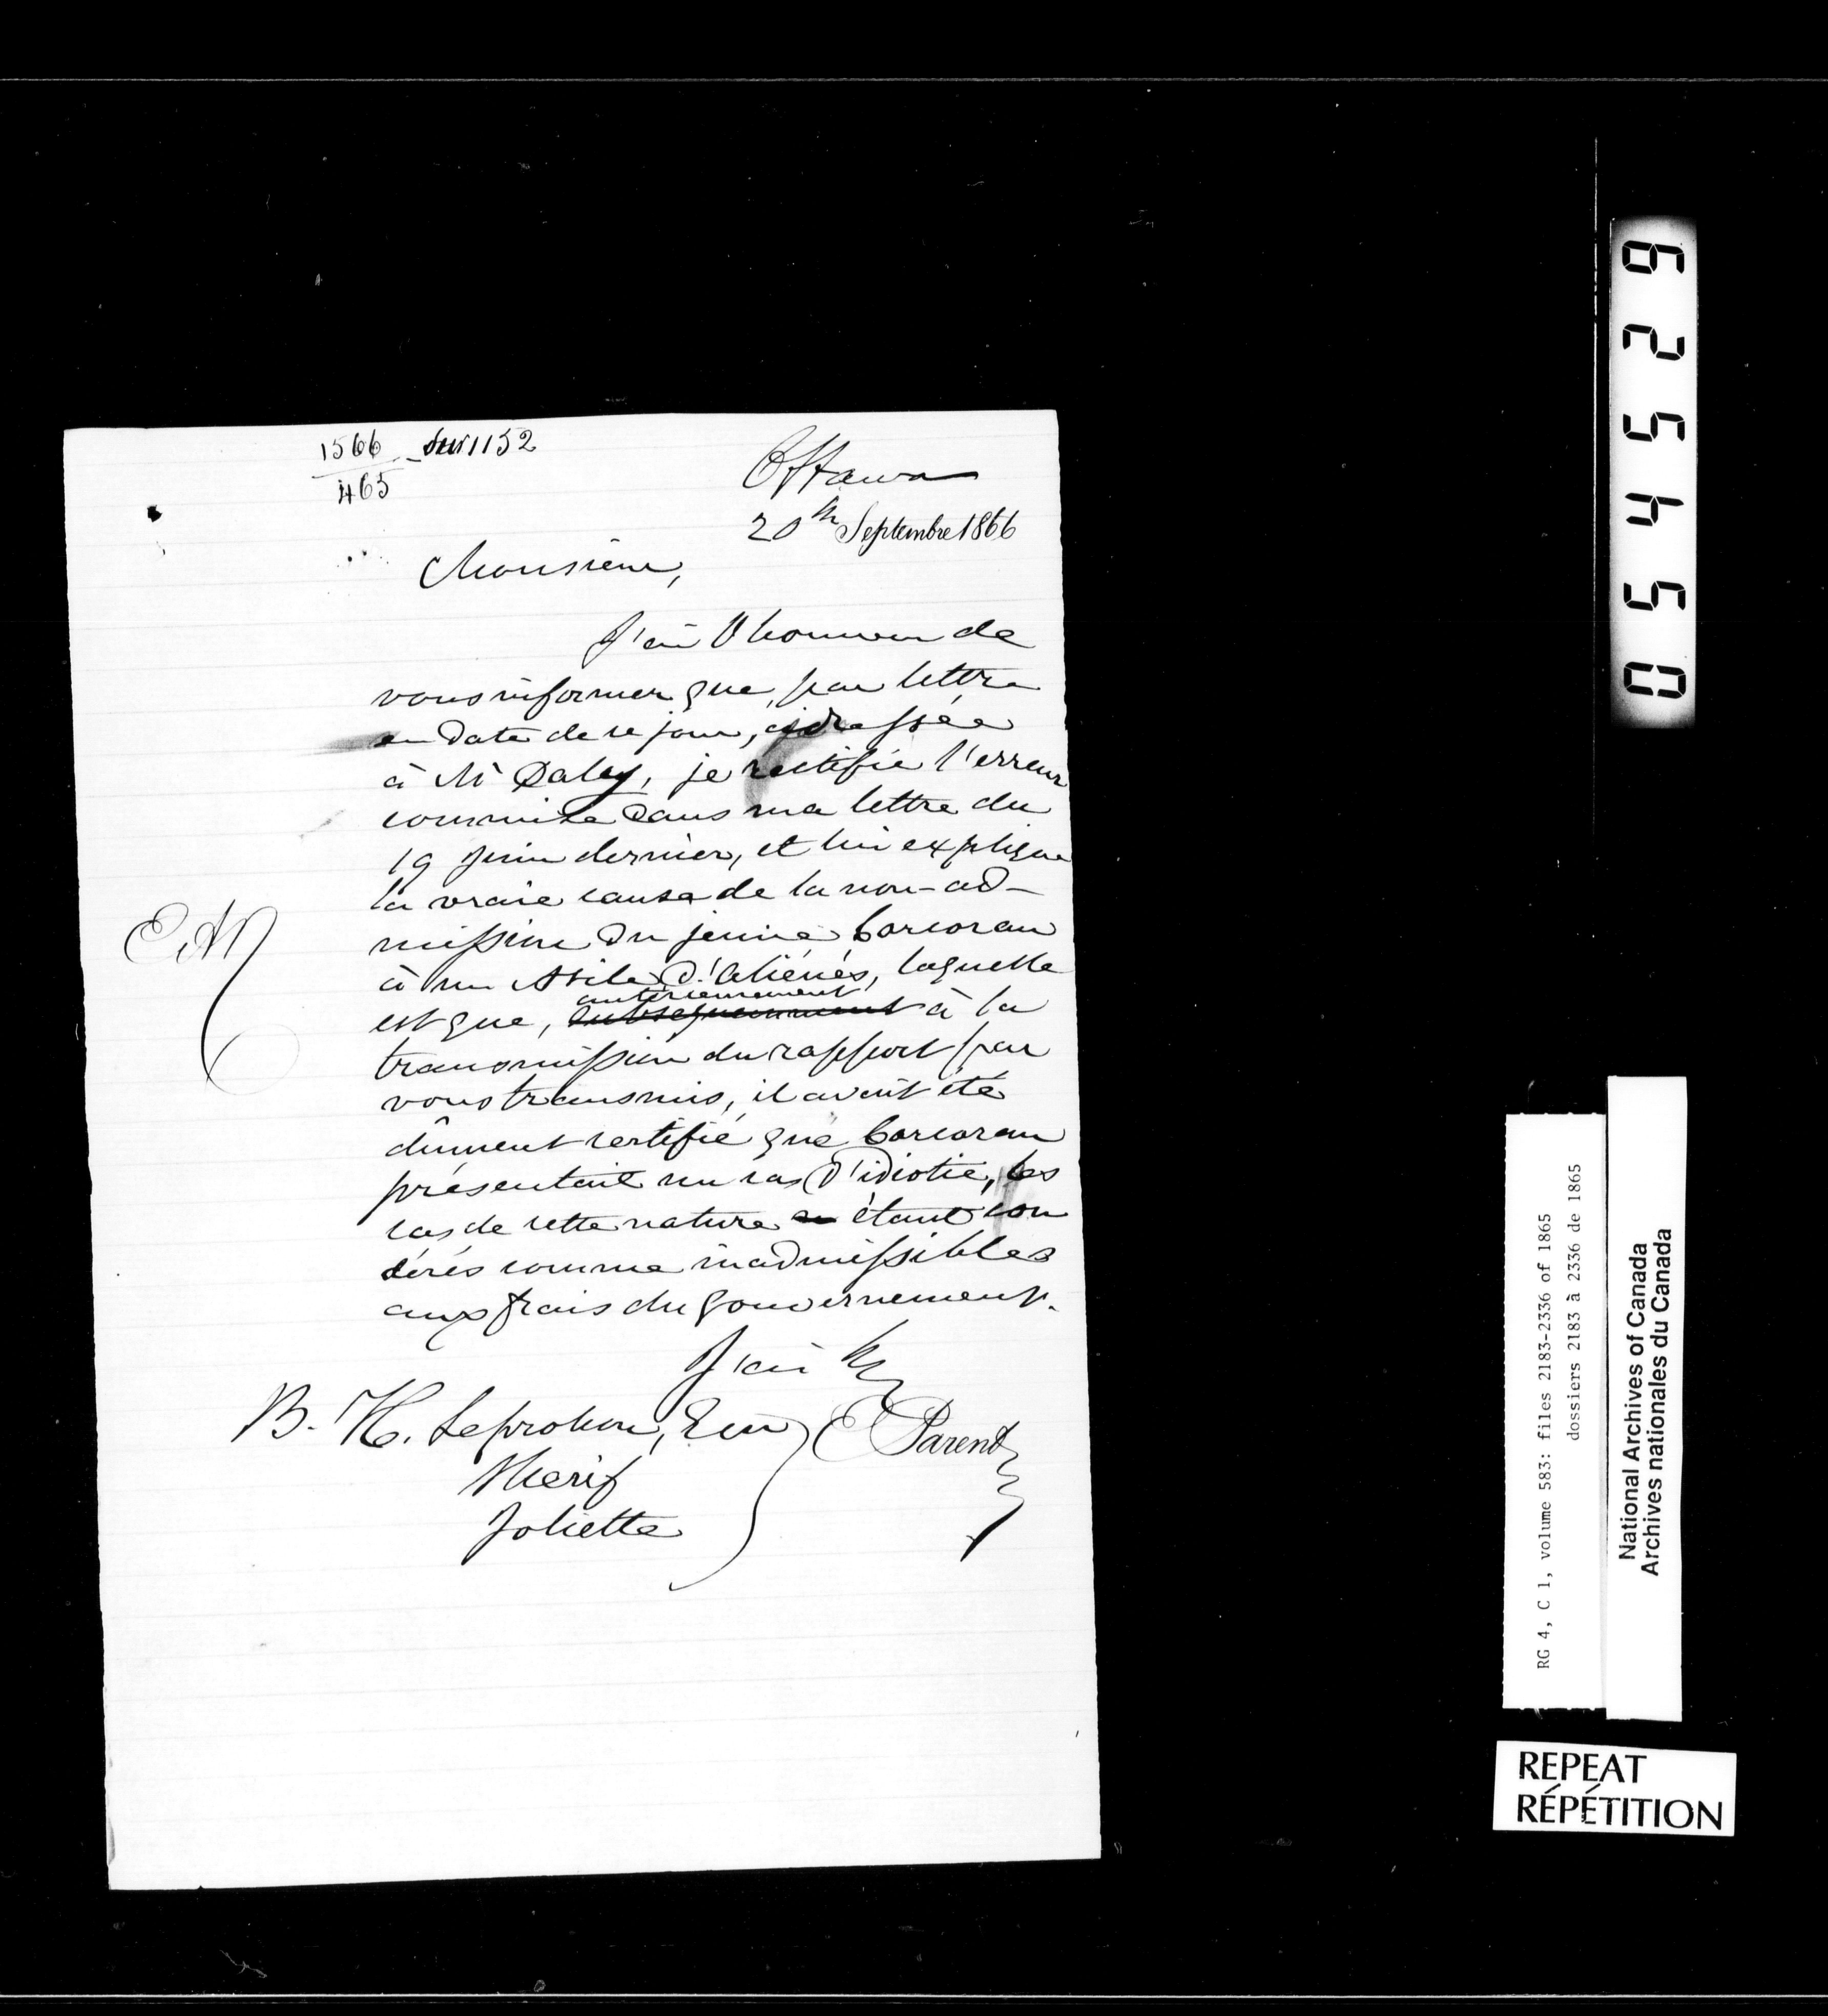 1566 – sur 1152
465
Ottawa
20th Septembre 1866
Monsieur,
J'ai l'honneur de
vous informer que, par lettre
en date de ce jour, adressée
à Mr Daley, je rectifie l'erreur
commise dans ma lettre du
19 juin dernier, et lui explique
la vraie cause de la non-ad-
mission du jeune Corcoran
à un Asile d'aliénés, laquelle
antérieurement
est que, subséquemment à la
transmission du rapport par
vous transmis, il avait été
dûment certifié que Corcoran
présentait un cas d'idiotie, les
cas de cette nature étant con
dérés comme inadmissibles
aux frais du gouvernement.
J'ai &c
B. H. Leprohon, Ecr
E Parent
Shérif
Joliette
054526
RG 4, C 1, volume 583: files 2183-2336 of 1865
dossiers 2183 à 2336 de 1865
National Archives of Canada
Archives nationales du Canada
REPEAT
RÉPÉTITION